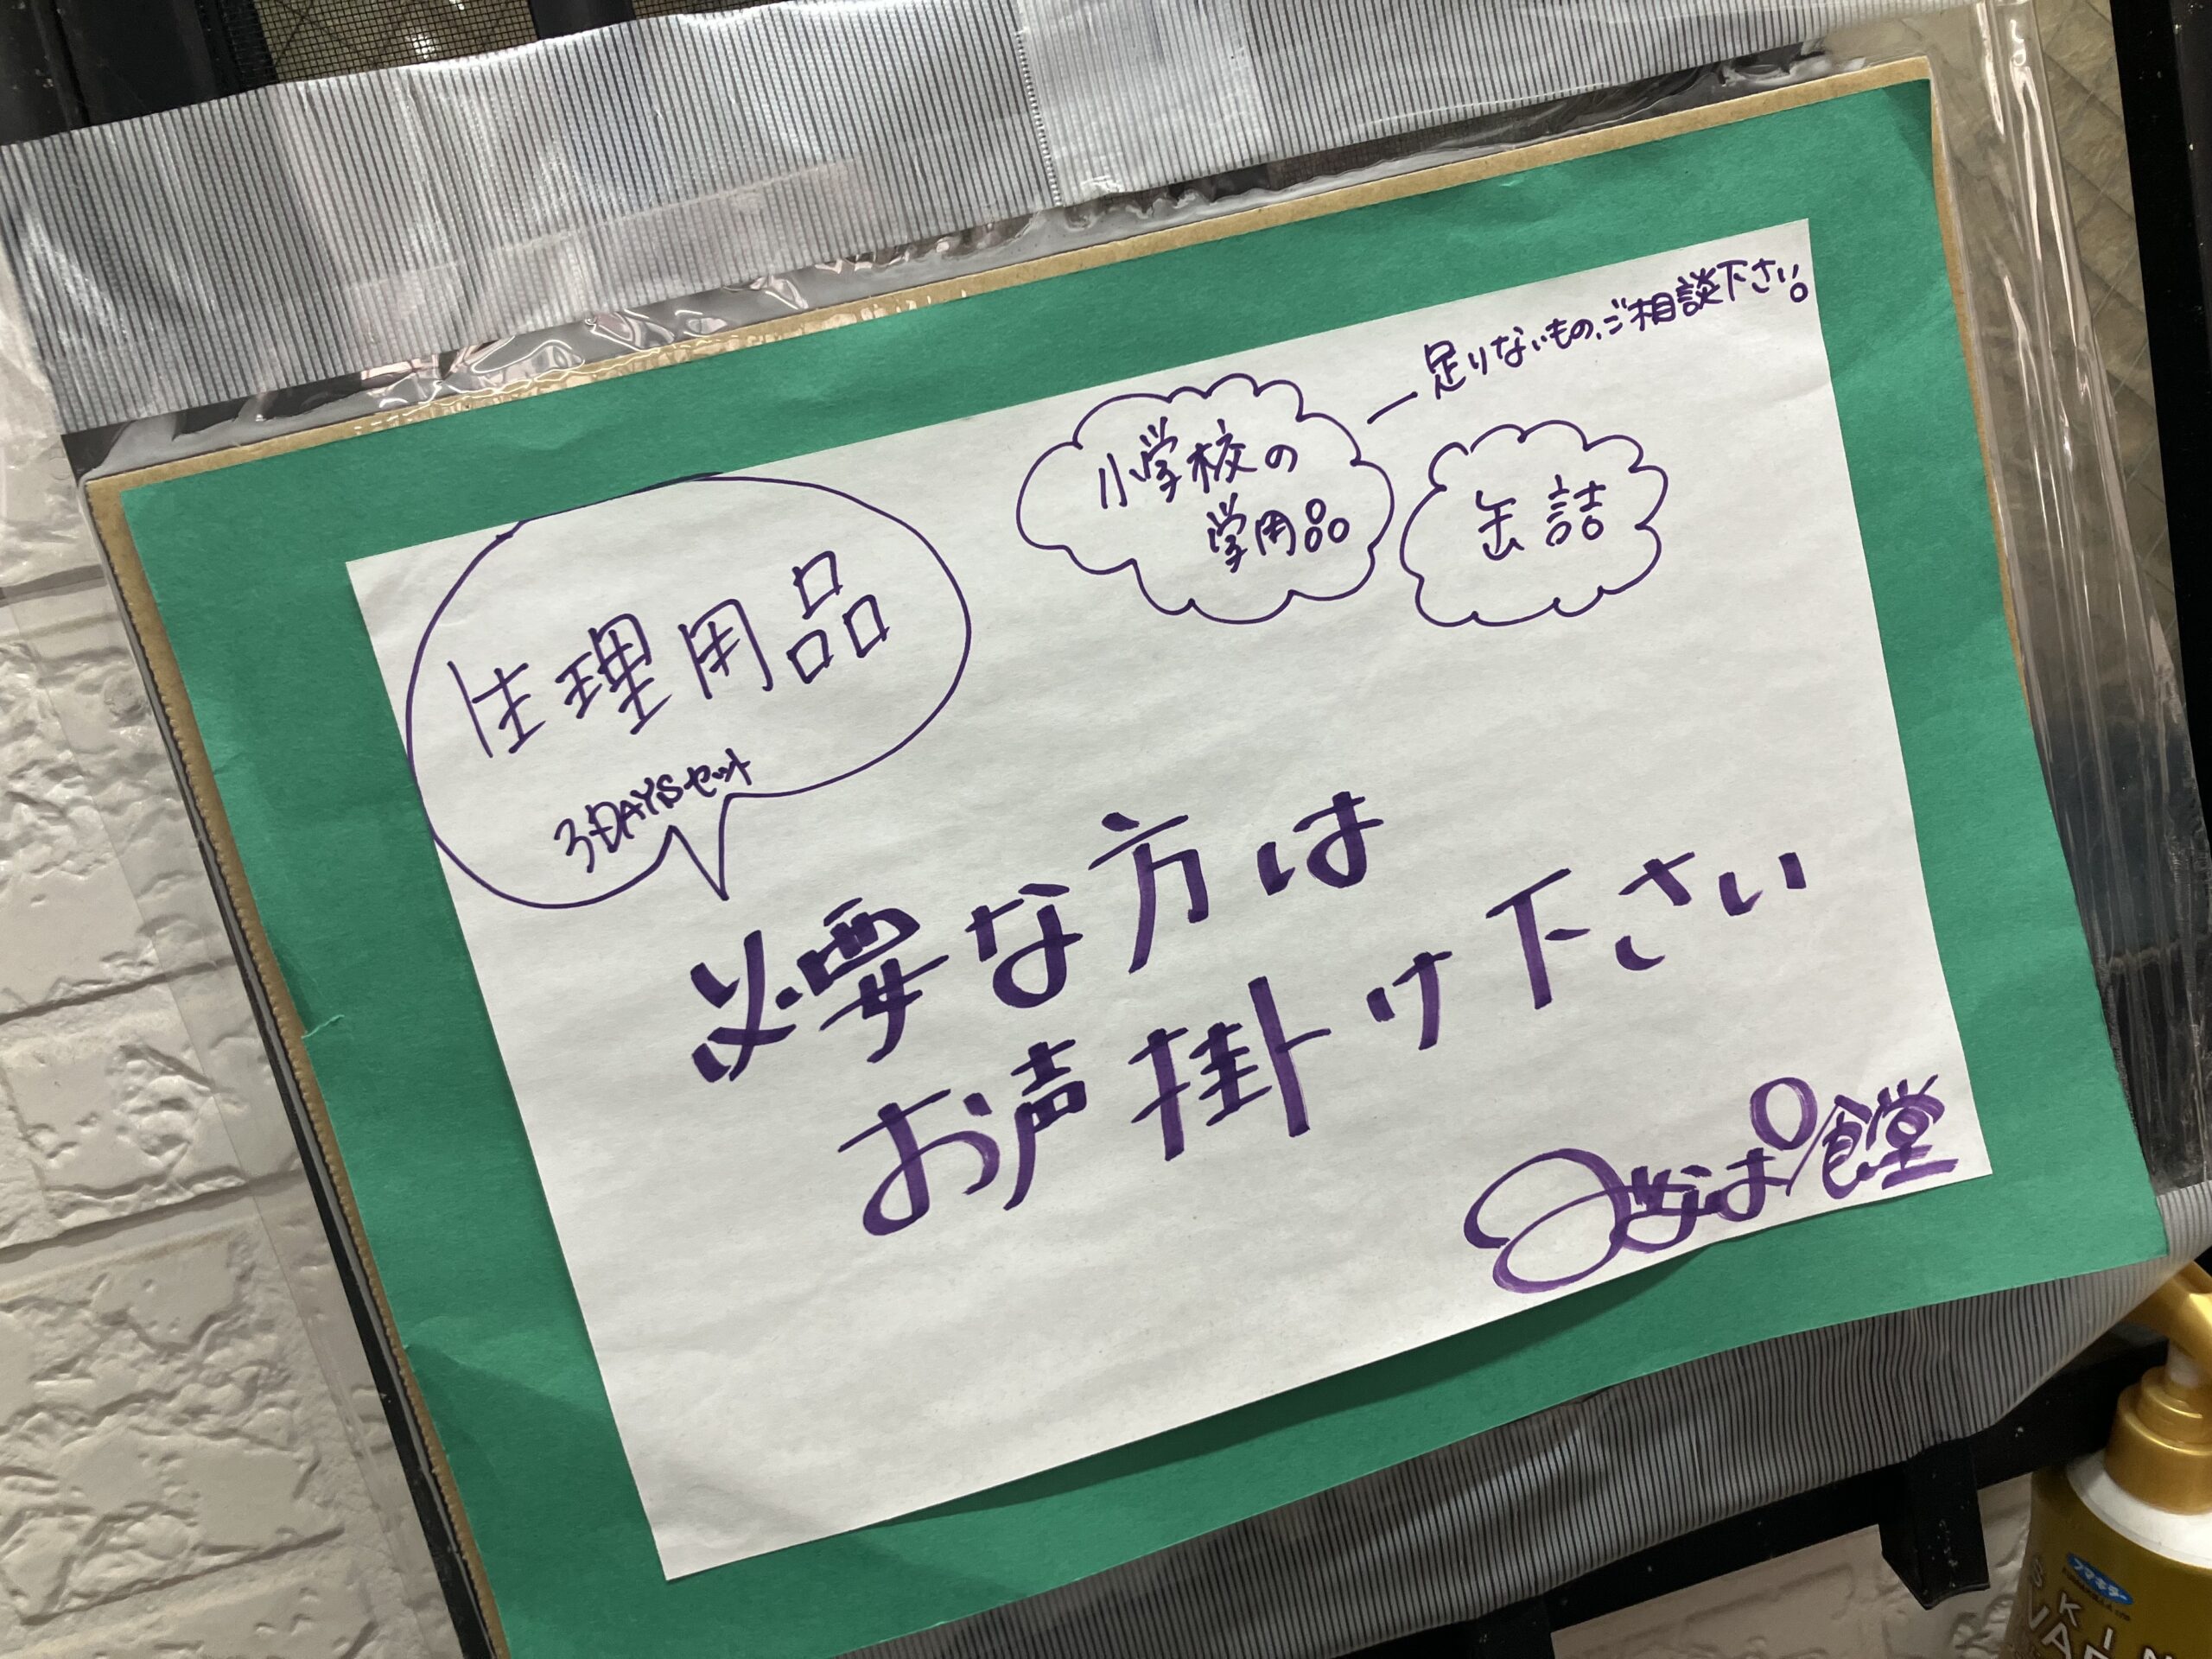 足りないもの、ご相談下さい。
小学校の
学用品
缶詰
生理用品
3DAYSセット
必要な方は
お声掛け下さい
食堂
フマキラー
SKIN